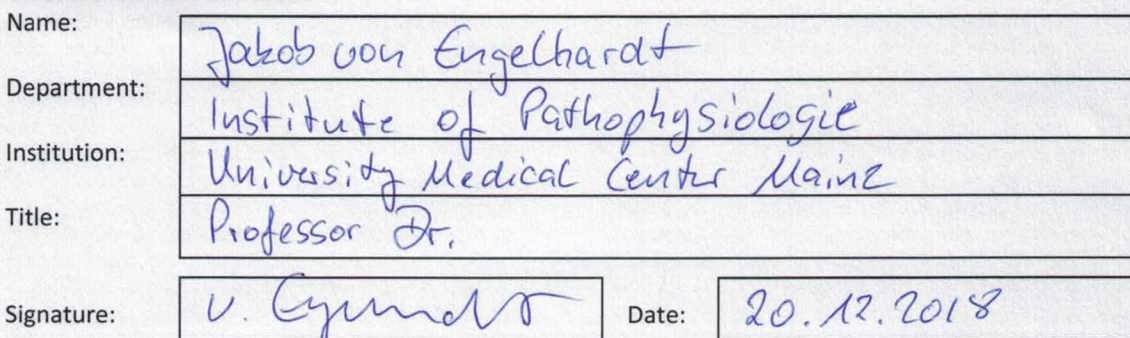 Name: Jakob von Engelhardt
Department: Institute of Pathophysiologie
Institution: University Medical Center Mainz
Title: Professor Dr.
Signature: v. Date: 20.12.2018